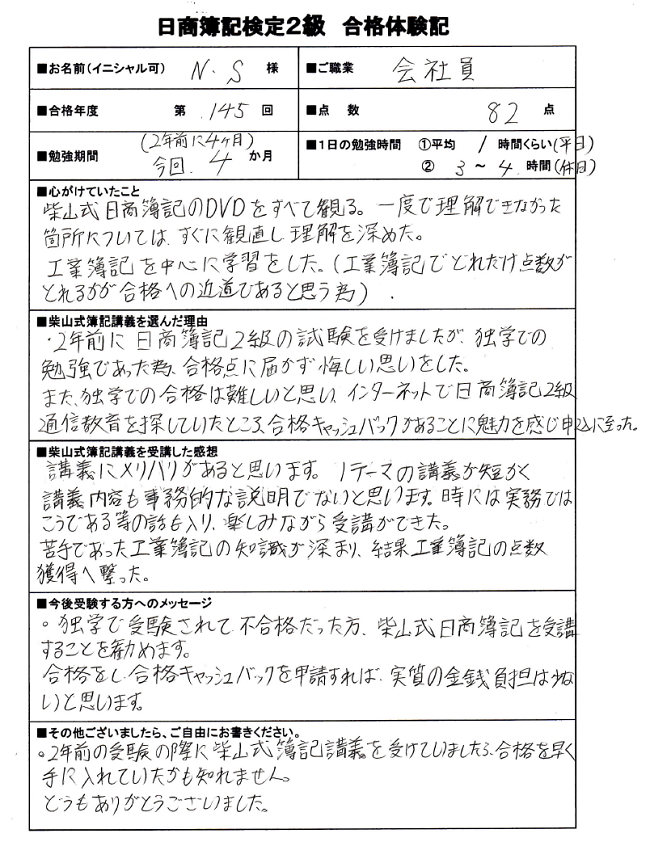 日商簿記検定2級 合格体験記
■お名前(イニシャル可) N.S 様
■ご職業 会社員
■合格年度 第 145 回
■点 数 82 点
■勉強期間 (2年前に4ヶ月)
今回. 4 か月
■1日の勉強時間 ①平均 1 時間くらい(平日)
② 3 ~ 4 時間(休日)
■心がけていたこと
柴山式日商簿記のDVDをすべて観る。一度で理解できなかった
箇所については、すぐに観直し理解を深めた。
工業簿記を中心に学習をした。(工業簿記でどれだけ点数が
とれるかが合格への近道であると思う為).
■柴山式簿記講義を選んだ理由
・2年前に日商簿記2級の試験を受けましたが、独学での
勉強であった為、合格点に届かず悔しい思いをした。
また、独学での合格は難しいと思い、インターネットで日商簿記2級
通信教育を探していたところ、合格キャッシュバックがあることに魅力を感じ申込に至った。
■柴山式簿記講義を受講した感想
講義にメリハリがあると思います。1テーマの講義が短かく
講義内容も事務的な説明でないと思います。時には実務では
こうである等の話も入り、楽しみながら受講ができた。
苦手であった工業簿記の知識が深まり、結果工業簿記の点数
獲得へ繋った。
■今後受験する方へのメッセージ
。独学で受験されて不合格だった方、柴山式日商簿記を受講
することを勧めます。
合格をし、合格キャッシュバックを申請すれば、実質の金銭負担は少な
いと思います。
■その他ございましたら、ご自由にお書きください。
。2年前の受験の際に柴山式簿記講義を受けていましたら、合格を早く
手に入れていたかも知れません。
どうもありがとうございました。